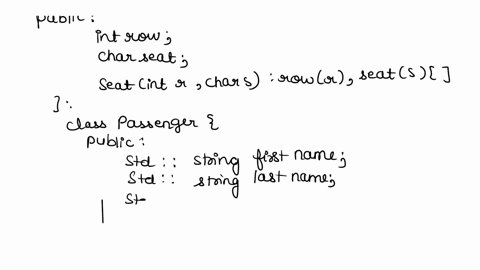 public:
int row;
char seat;
Seat(int r, char s) : row(r), seat(s)[ ]
}:
class Passenger {
public:
Std :: string first name;
Std :: string last name;
St